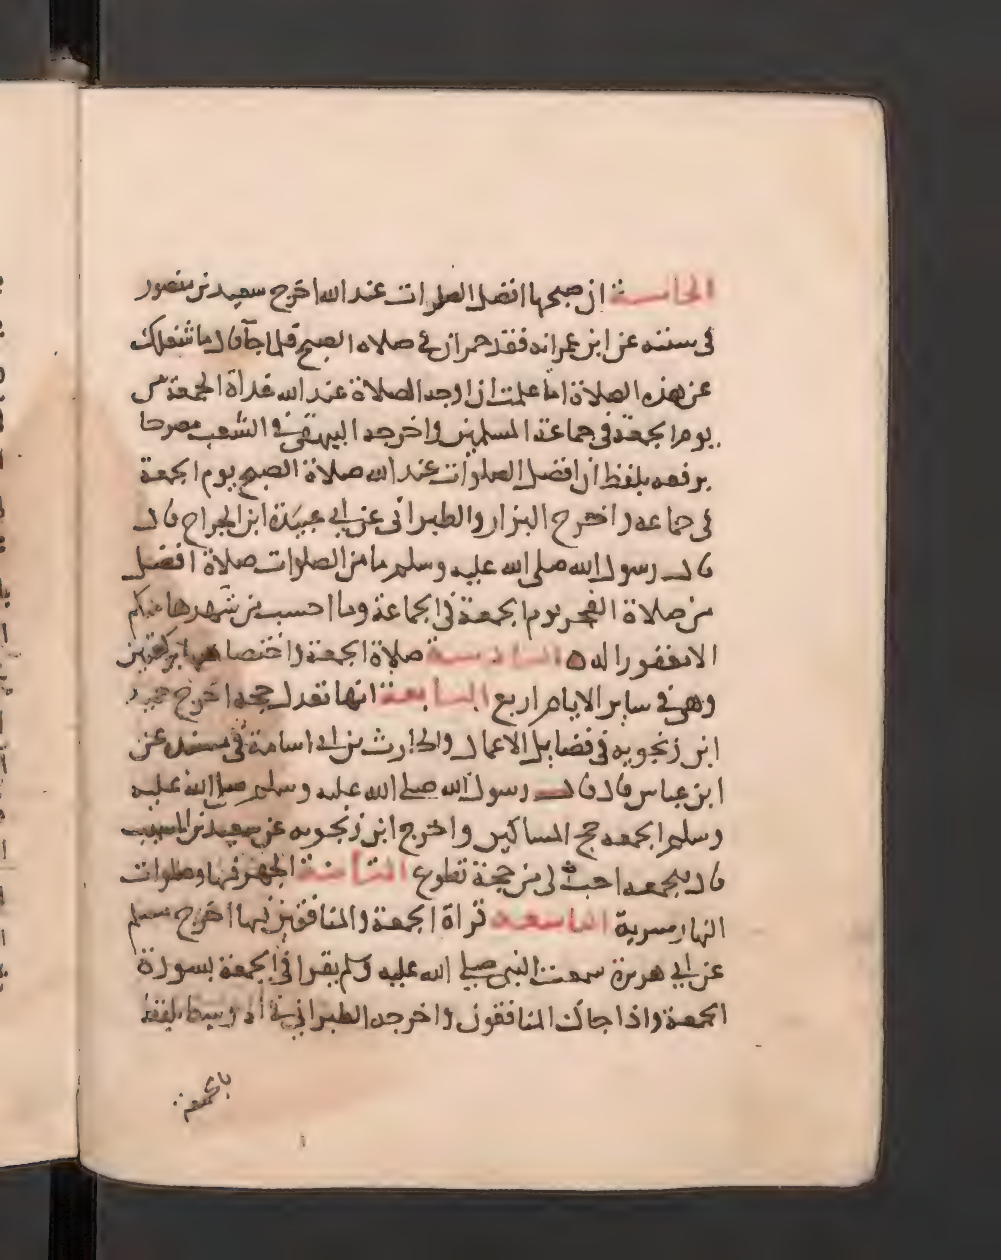 الخامسة ان صبحها افضل الصلوات عند الله اخرج سعيد بن منصور
فى سننه عن ابن عمر انه فقد حمران فى صلاة الصبح فلما جآ قال ما شغلك
عن هذه الصلاة اما علمت ان اوجه الصلاة عند الله غداة الجمعة من
يوم الجمعة فى جماعة المسلمين واخرجه البيهقى فى الشعب مصرحا
برفعه بلفظ ان افضل الصلوات عند الله صلاة الصبح يوم الجمعة
فى جماعه واخرج البزار والطبرانى عن ابى عبيدة ابن الجراح قال
قال رسول الله صلى الله عليه وسلم ما من الصلوات صلاة افضل
من صلاة الفجر يوم الجمعة فى الجماعة وما احسب من شهدها منكم
الا مغفورا له ه السادسة صلاة الجمعة واختصاصها بركعتين
وهى فى ساير الايام اربع السابعة انها تعدل حجه اخرج حميد
ابن زنجويه فى فضايل الاعمال والحارث بن ابى اسامة فى مسنده عن
ابن عباس قال قال رسول الله صلى الله عليه وسلم صلى الله عليه
وسلم الجمعه حج المساكين واخرج ابن زنجويه عن سعيد بن المسيب
قال لجمعه احب الى من حجة تطوع الثامنة الجهر فيها وصلوات
النهار سرية التاسعه قراة الجمعة والمنافقين فيها اخرج مسلم
عن ابى هريرة سمعت النبى صلى الله عليه وسلم يقرا فى الجمعة بسورة
الجمعة واذا جاك المنافقون واخرجه الطبرانى فى الاوسط بلفظ
بالجمعة